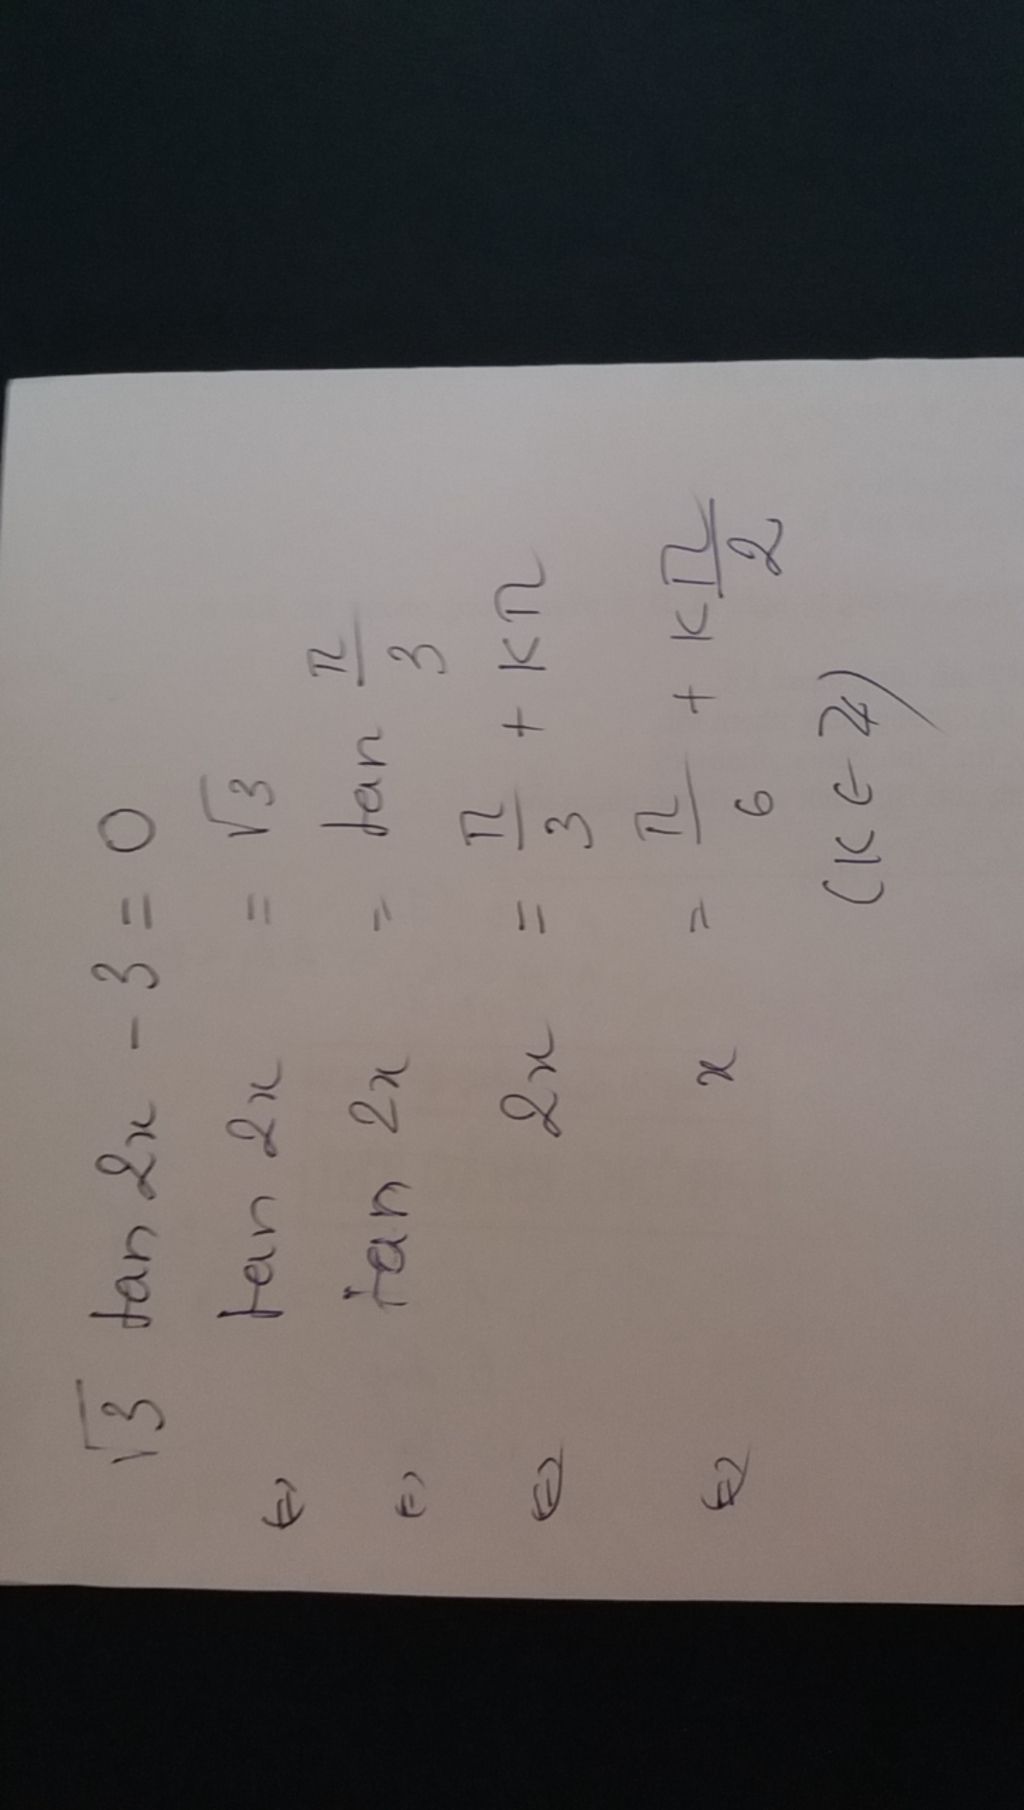 √3 tan 2x - 3 = 0
⇔ tan 2x = √3
⇔ tan 2x = tan π/3
⇔ 2x = π/3 + kπ
⇔ x = π/6 + k π/2
(k ∈ ℤ)